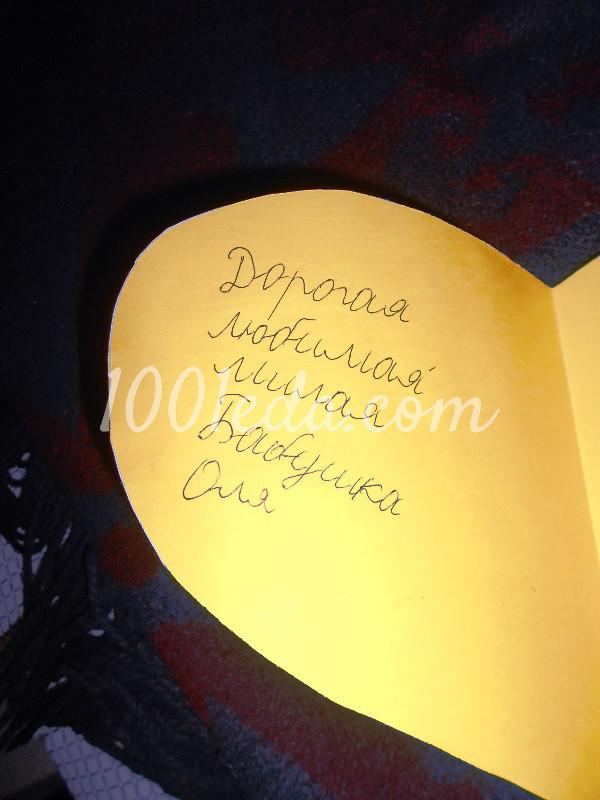 Дорогая
любимая
милая
100leda.com
Бабушка
Оля